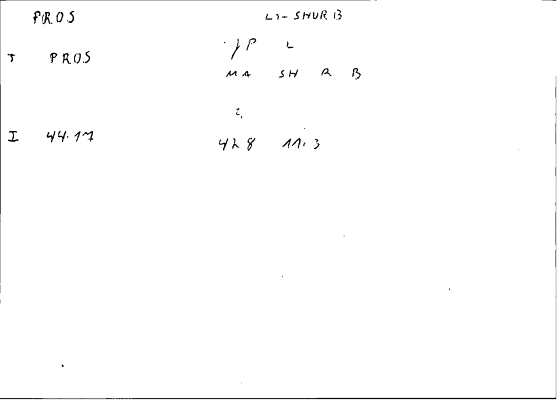 PROS LI-SHUR B
P L
I PROS
MA SH R B
2.
I 44.17 428 11.3